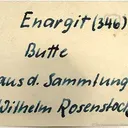 Enargit (346)
Butte
aus d. Sammlung
Wilhelm Rosenstock